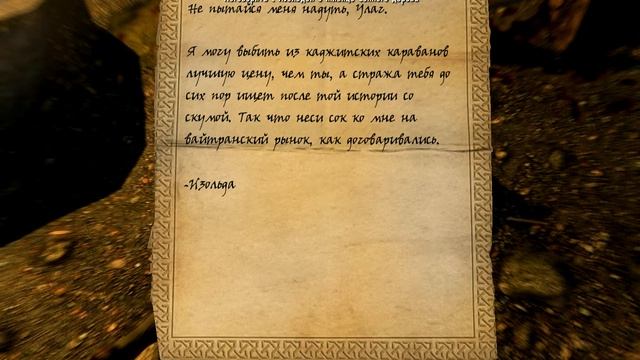 Не пытайся меня надуть, Улаг.
Я могу выбить из каджитских караванов
лучшую цену, чем ты, а стража тебя до
сих пор ищет после той истории со
скумой. Так что неси сок ко мне на
вайтранский рынок, как договаривались.
-Изольда